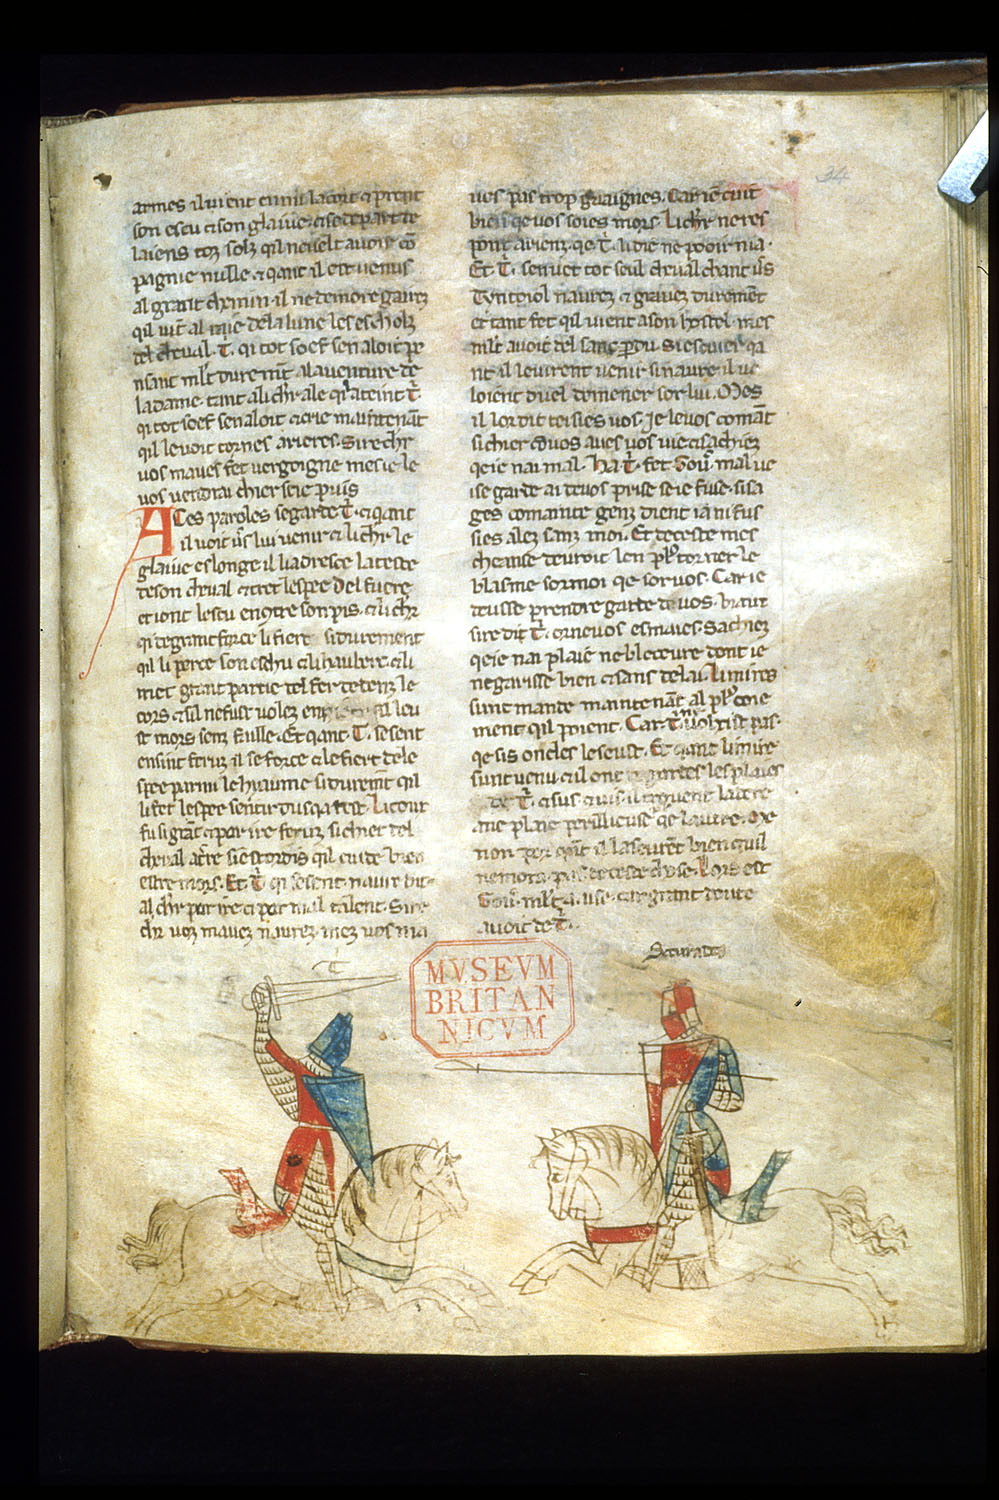 armes il vient enmi la cort et prent
son escu et son glaiue. et se depart de
laiens toz solz qil ne uelt auoir co
pagnie nulle. et qant il est uenus
al grant chemin. il ne demore gaires
qil uit al raie de la lune les escholz
del cheual. T. qi tot soef sen aloit pe
nsant mlt durement al auenture de
la dame. tant ali chr ale qil ateint T.
qi tot soef sen aloit et crie maintenant
qil le uoit tornes arieres. Sire chr
vos maues fet vergoigne mes ie le
vos vendrai chier se ie puis
A Ces paroles se garde T. et qant
il uoit uers lui uenir et li chr le
glaiue eslongie il li adresce la teste
de son cheual et tret lespee del fuere
et ioint lescu enconte son pis. et li chr
qi de grant force li fiert si durement
qil li perce son eschu et li hauberc. et li
met grant partie del fer dedenz le
cors et sil ne fust uolez
st mors senz faille. Et qant T. se sent
ensint feruz il se force et le fiert de le
spee parmi le hyaume si durement qil
li fet lespee sentir dusqa test. Li cour
fu si grant et par ire feruz si chiet del
cheual a terre si estordis qil cuide bien
estre mors. Et T. qi se sent naure dit
al chr par ire et par mal talent. Sire
chr uoz mauez naurez. mez uos ni a
ues pas trop guaignes. Car ie cuit
bien qe vos soies mors. Li chr ne res
pont a rienz qe T. li die ne pooir nia.
Et T. sen uet tot seul cheualchant uers
Tynteiol naurez et greuez durement
et tant fet qil uient a son hostel. mes
mlt auoit del sanc perdu. Si escuier qa
nt il le uirent uenir si naure il ue
loient duel demener sor lui. Mes
il lor dit teisies vos. Je le vos comant
si chier com vos aues vos uie et sachiez
qe ie nai mal. Ha T. fet Gou. mal ue
ise garde ai de vos prise se ie fuse. si sa
ges comainte genz dient ia ni fus
sies alez sanz moi. Et de ceste mes
cheanse deuroit len plus torner le
blasme sor moi qe sor vos. Car ie
deusse prendre garde de vos. biaux
sire dit T. or ne vos esmaies. Sachiez
qe ie nai plaie ne bleceure dont ie
ne garisse bien et sans delai. Li mires
sunt mande maintenant al plus coie
ment qil poient. Car T. ne uolsist pas.
qe sis oncles le seust. Et qant li mire
sunt venu et il ont regardees les plaies
de T. et sus et ius. il treuuent la dere
ane plaie perillieuse qe lautre. Me
non por qant il laseurent bien qil
ne morra pas de ceste chose. Lors est
Gou. mlt a ise. car grant doute
auoit de T.
34
T
Segurades
MVSEVM
BRITAN
NICVM